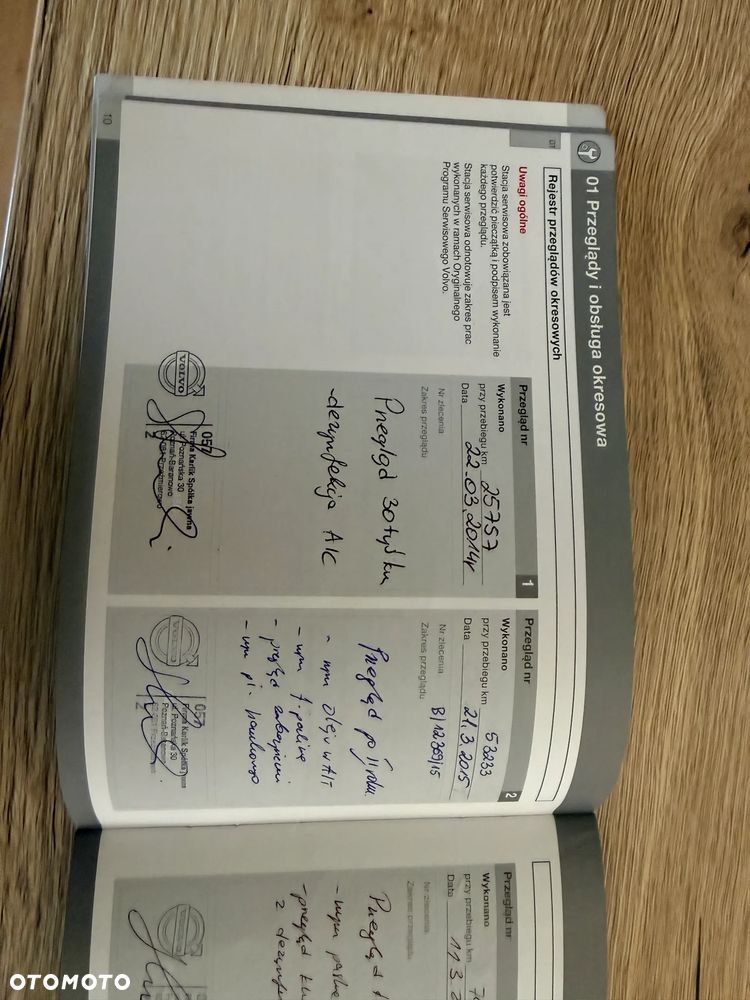 01 Przeglądy i obsługa okresowa
01
Rejestr przeglądów okresowych
Uwagi ogólne
Stacja serwisowa zobowiązana jest
potwierdzić pieczątką i podpisem wykonanie
każdego przeglądu.
Stacja serwisowa odnotowuje zakres prac
wykonanych w ramach Oryginalnego
Programu Serwisowego Volvo.
10
Przegląd nr 1
Wykonano
przy przebiegu km 25757
Data 22-03.2014r
Nr zlecenia
Zakres przeglądu
Przegląd 30 tyś km
- dezynfekcja A/C
VOLVO
057
Firma Karlik Spółka jawna
ul. Poznańska 30
Poznań-Baranowo
2
Przegląd nr 2
Wykonano
przy przebiegu km 53233
Data 21.3.2015
Nr zlecenia B/12369/15
Zakres przeglądu
Przegląd po II roku
- wym oleju w
- wym f. paliwa
- przegląd
- wym pł. hamulcowego
VOLVO
057
Firma Karlik Spółka jawna
ul. Poznańska 30
2
Przegląd nr
Wykonano
przy przebiegu km
Data 11 3.
Nr zlecenia
Zakres przeglądu
Przegląd
- wym
- przegląd
z
OTOMOTO